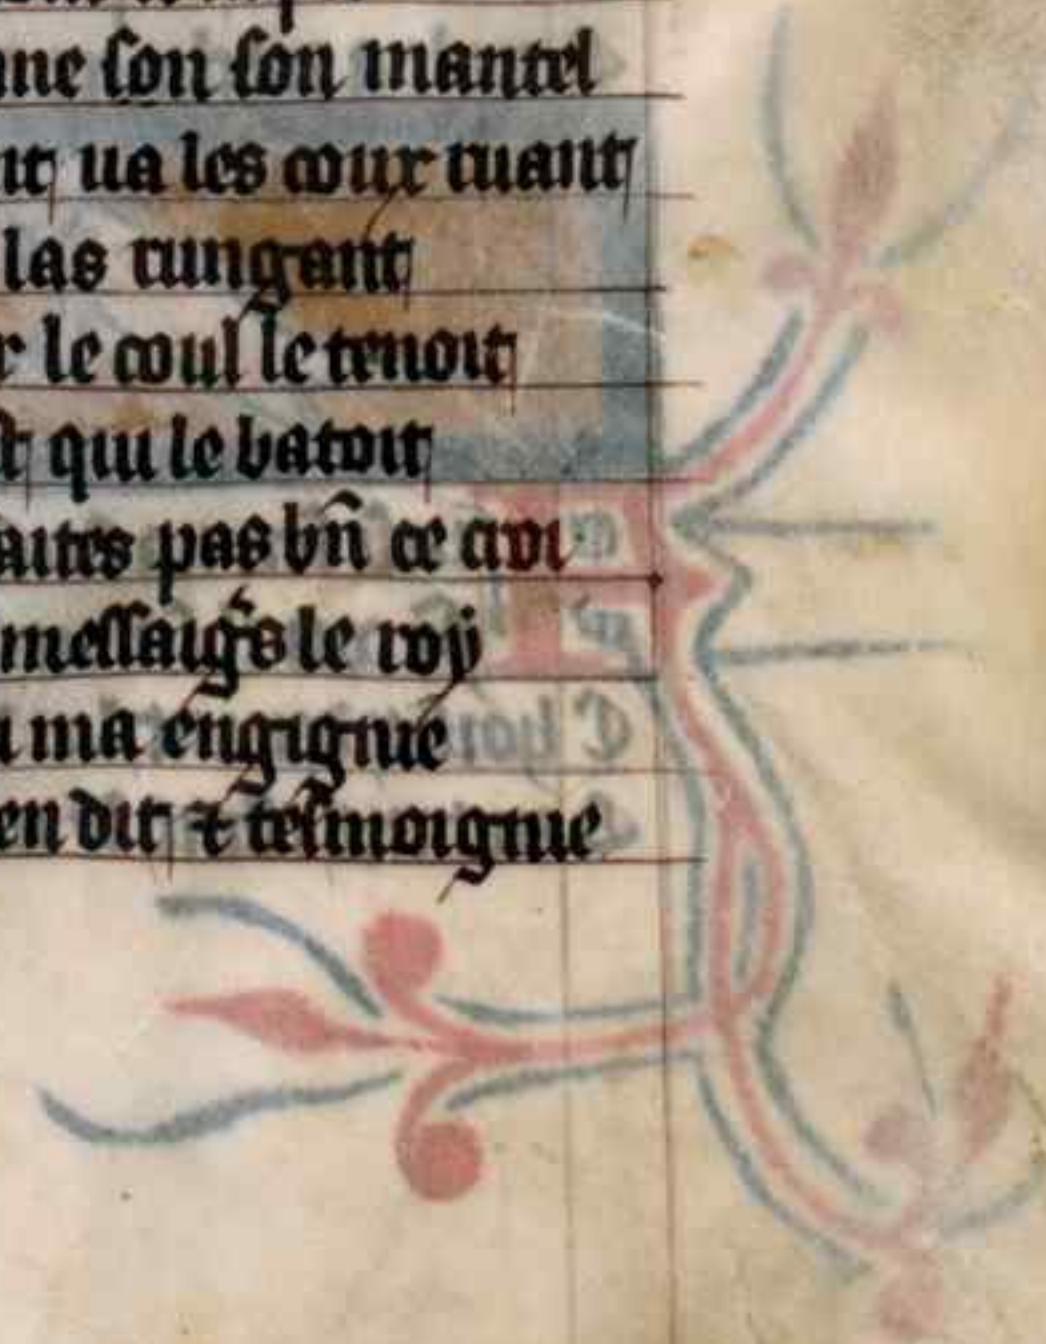 son son mantel
ua les coux ruant
las rungant
le coul le tenoit
qui le batoit
aites pas bn̄ ce croi
messaigs le roy
ma engignie
en dit ⁊ tesmoignie